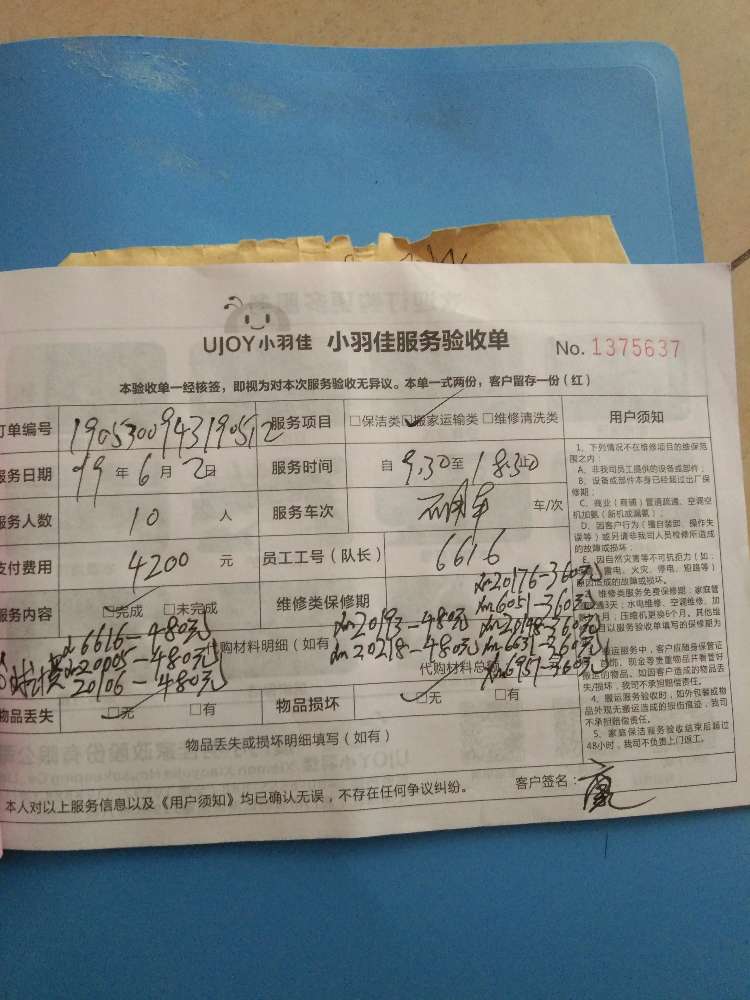 UJOY小羽佳 小羽佳服务验收单 No. 1375637
本验收单一经核签，即视为对本次服务验收无异议。本单一式两份，客户留存一份（红）
订单编号 190530094319051 2 服务项目 □保洁类 ☑搬家运输类 □维修清洗类
服务日期 19 年 6 月 2 日 服务时间 自 9:30 至 18:30 止
服务人数 10 人 服务车次 车/次
支付费用 4200 元 员工工号（队长） 6616
服务内容 ☑完成 □未完成 维修类保修期
20176-360元
6051-360元
6616-480元 代购材料明细（如有 20193-480元 20198-360元
20005-480元 20218-480元 6631-360元
20106-480元 代购材料总额 6951-360元
物品丢失 ☑无 □有 物品损坏 ☑无 □有
物品丢失或损坏明细填写（如有）
本人对以上服务信息以及《用户须知》均已确认无误，不存在任何争议纠纷。
客户签名：
用户须知
1、下列情况不在维修项目的维保范
围之内：
A、非我司员工提供的设备或部件；
B、设备或部件本身已经超过出厂保
修期；
C、商业（商铺）管道疏通、空调空
机加氨（新机或漏氨）；
D、因客户行为（擅自装卸、操作失
误等）或另请非我司人员检修所造成
的故障或损坏；
E、因自然灾害等不可抗拒力（如：
雷电、火灾、停电、短路等）
原因造成的故障或损坏。
维修类服务免费保修期：家庭管
道通3天；水电维修、空调维修、加
1月；压缩机更换6个月。其他维
修项目以服务验收单填写的保修期为
服务中，客户应随身保管证
首饰、现金等贵重物品并看管好
搬运的物品。如因客户造成的物品丢
失/损坏，我司不承担赔偿责任。
4、搬运服务验收时，如外包装或物
品外观无搬运造成的损伤痕迹，我司
不承担赔偿责任。
5、家庭保洁服务验收结束后超过
48小时，我司不负责上门返工。